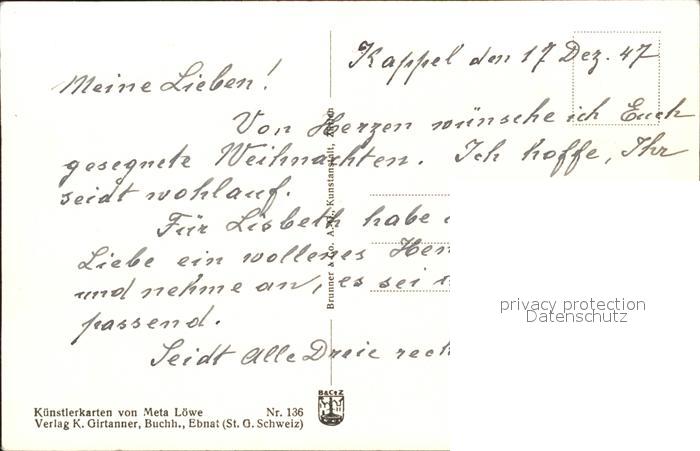 Kappel den 17 Dez. 47
Meine Lieben!
Von Herzen wünsche ich Euch
gesegnete Weihnachten. Ich hoffe, Ihr
seidt wohlauf.
Für Lisbeth habe
Liebe ein wollenes
und nehme an, es sei
passend.
Seidt Alle Dreie
Brunner & Co. A.-G., Kunstanstalt, Zürich
privacy protection
Datenschutz
B&C°Z
Künstlerkarten von Meta Löwe Nr. 136
Verlag K. Girtanner, Buchh., Ebnat (St. G. Schweiz)